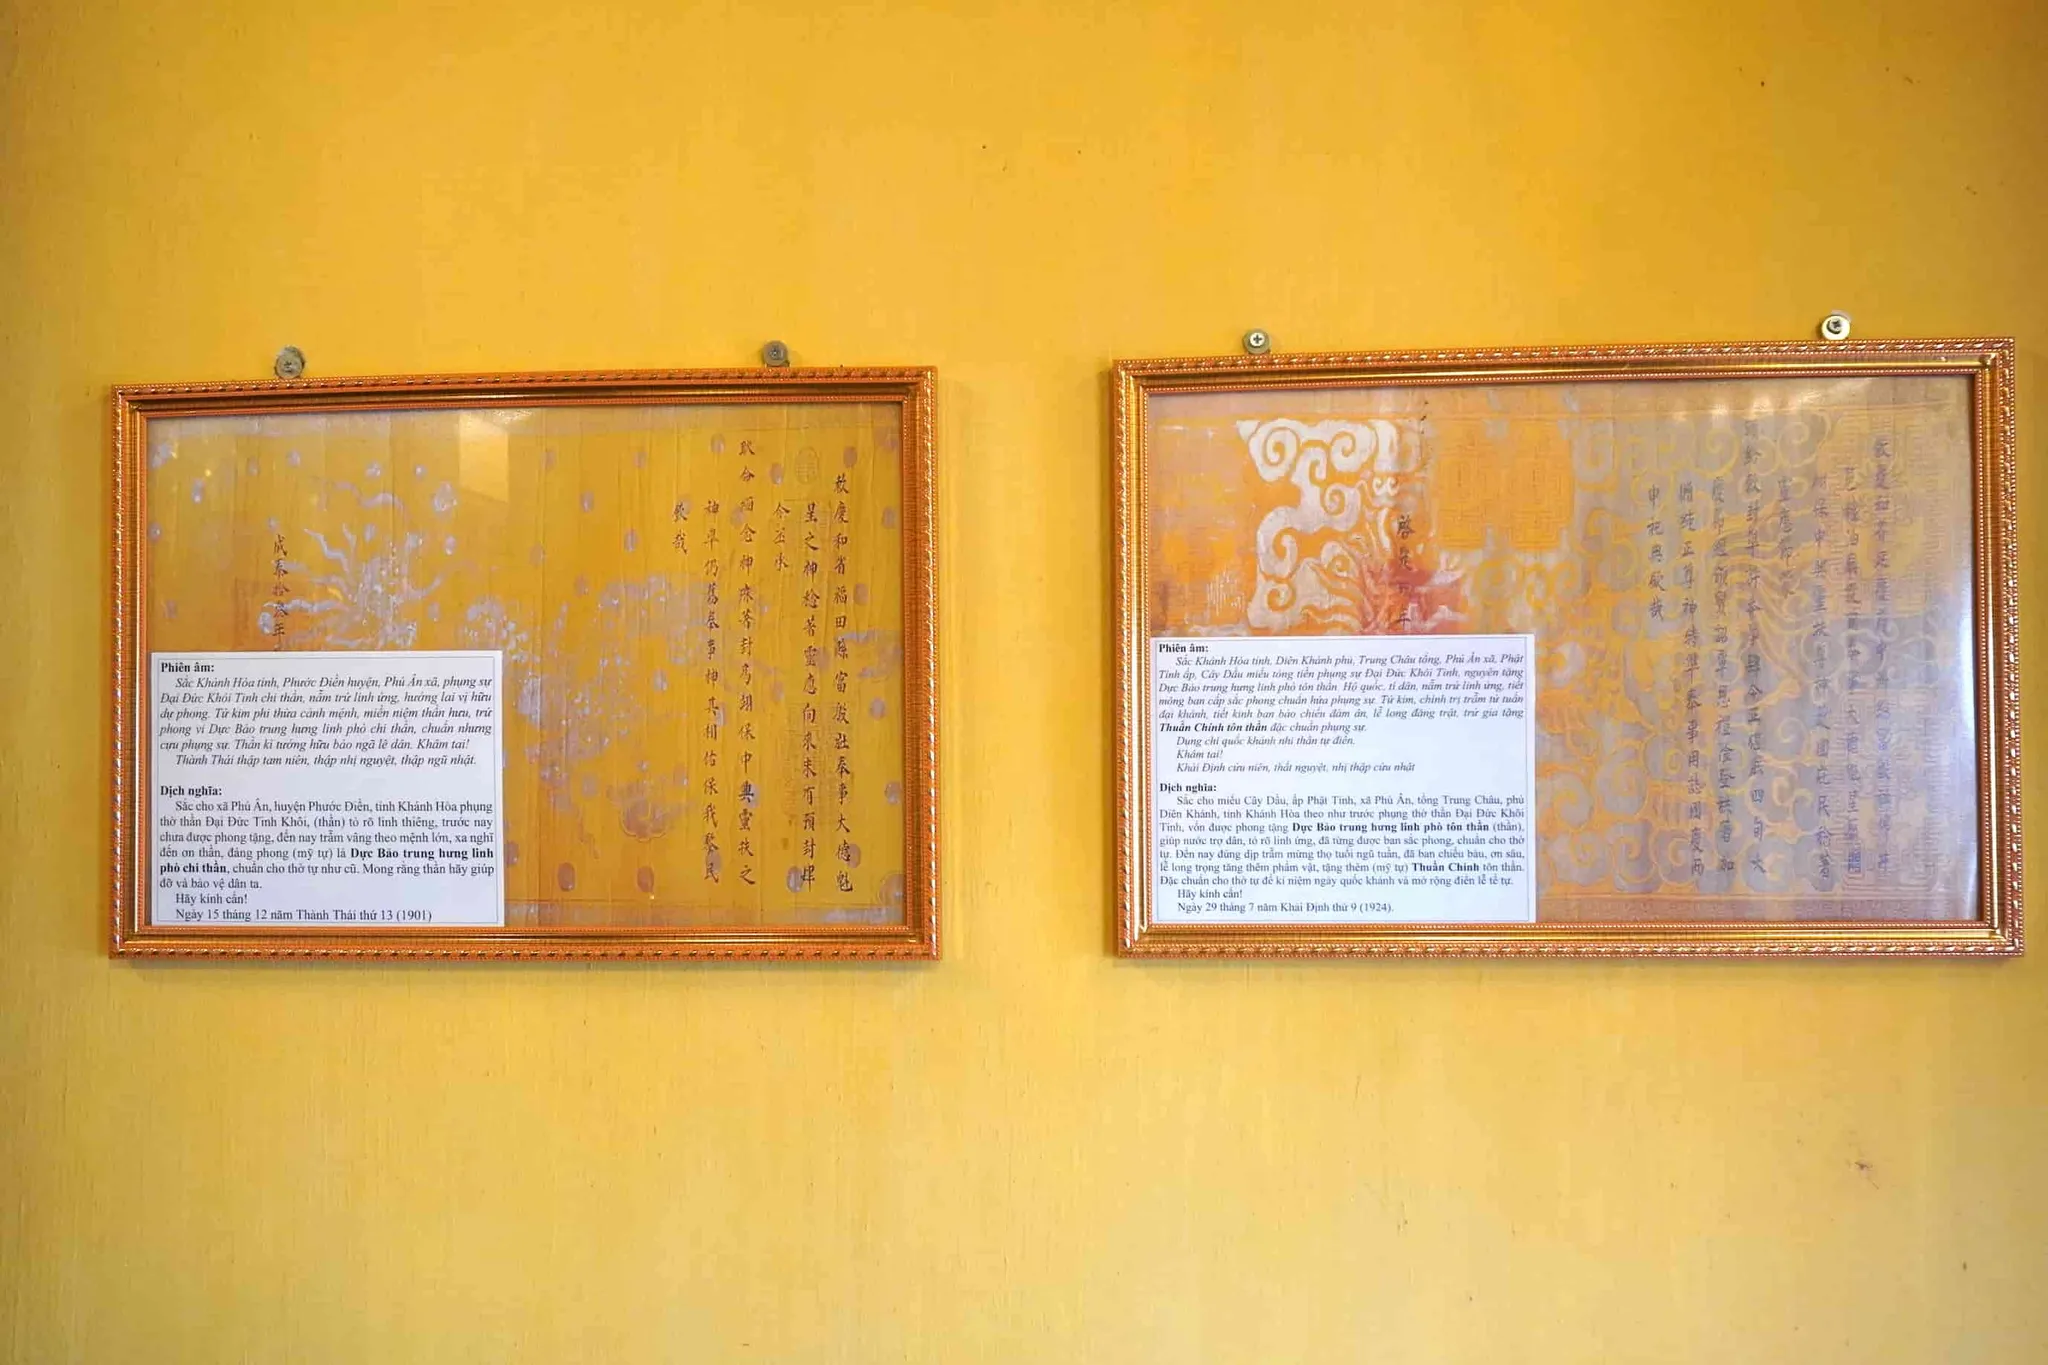 敕慶和省福田縣富殷社奉事大德魁
星之神稔著靈應向來未有預封肆
今丕承
耿命緬念神庥著封爲翊保中興靈扶之
神準仍舊奉事神其相佑保我黎民
欽哉
成泰拾叁年
Phiên âm:
Sắc Khánh Hòa tỉnh, Phước Điền huyện, Phú Ân xã, phụng sự
Đại Đức Khôi Tinh chi thần, nẫm trứ linh ứng, hướng lai vị hữu
dự phong. Tứ kim phi thừa cảnh mệnh, miến niệm thần hưu, trứ
phong vi Dực Bảo trung hưng linh phò chi thần, chuẩn nhưng
cựu phụng sự. Thần kì tướng hữu bảo ngã lê dân. Khâm tai!
Thành Thái thập tam niên, thập nhị nguyệt, thập ngũ nhật.
Dịch nghĩa:
Sắc cho xã Phú Ân, huyện Phước Điền, tỉnh Khánh Hòa phụng
thờ thần Đại Đức Tinh Khôi, (thần) tỏ rõ linh thiêng, trước nay
chưa được phong tặng, đến nay trẫm vâng theo mệnh lớn, xa nghĩ
đến ơn thần, đáng phong (mỹ tự) là Dực Bảo trung hưng linh
phò chi thần, chuẩn cho thờ tự như cũ. Mong rằng thần hãy giúp
đỡ và bảo vệ dân ta.
Hãy kính cẩn!
Ngày 15 tháng 12 năm Thành Thái thứ 13 (1901)
敕慶和省延慶府中
保中興靈扶尊神護國庇民稔著
靈應節蒙
給敕封準許奉事肆今正值朕四旬大
慶節經頒寶詔覃恩禮隆登秩著加
贈純正尊神特準奉事用誌國慶而
申祀典欽哉
啓定九年
Phiên âm:
Sắc Khánh Hòa tỉnh, Diên Khánh phủ, Trung Châu tổng, Phú Ân xã, Phật
Tỉnh ấp, Cây Dầu miếu tòng tiền phụng sự Đại Đức Khôi Tinh, nguyên tặng
Dực Bảo trung hưng linh phò tôn thần. Hộ quốc, tí dân, nẫm trứ linh ứng, tiết
mông ban cấp sắc phong chuẩn hứa phụng sự. Tứ kim, chính trị trẫm tứ tuần
đại khánh, tiết kinh ban bảo chiếu đàm ân, lễ long đăng trật, trứ gia tặng
Thuần Chính tôn thần đặc chuẩn phụng sự.
Dụng chí quốc khánh nhi thân tự điển.
Khâm tai!
Khải Định cửu niên, thất nguyệt, nhị thập cửu nhật
Dịch nghĩa:
Sắc cho miếu Cây Dầu, ấp Phật Tỉnh, xã Phú Ân, tổng Trung Châu, phủ
Diên Khánh, tỉnh Khánh Hòa theo như trước phụng thờ thần Đại Đức Khôi
Tinh, vốn được phong tặng Dực Bảo trung hưng linh phò tôn thần (thần),
giúp nước trợ dân, tỏ rõ linh ứng, đã từng được ban sắc phong, chuẩn cho thờ
tự. Đến nay đúng dịp trẫm mừng thọ tuổi ngũ tuần, đã ban chiếu báu, ơn sâu,
lễ long trọng tăng thêm phẩm vật, tặng thêm (mỹ tự) Thuần Chính tôn thần.
Đặc chuẩn cho thờ tự để kỉ niệm ngày quốc khánh và mở rộng điển lễ tế tự.
Hãy kính cẩn!
Ngày 29 tháng 7 năm Khải Định thứ 9 (1924).